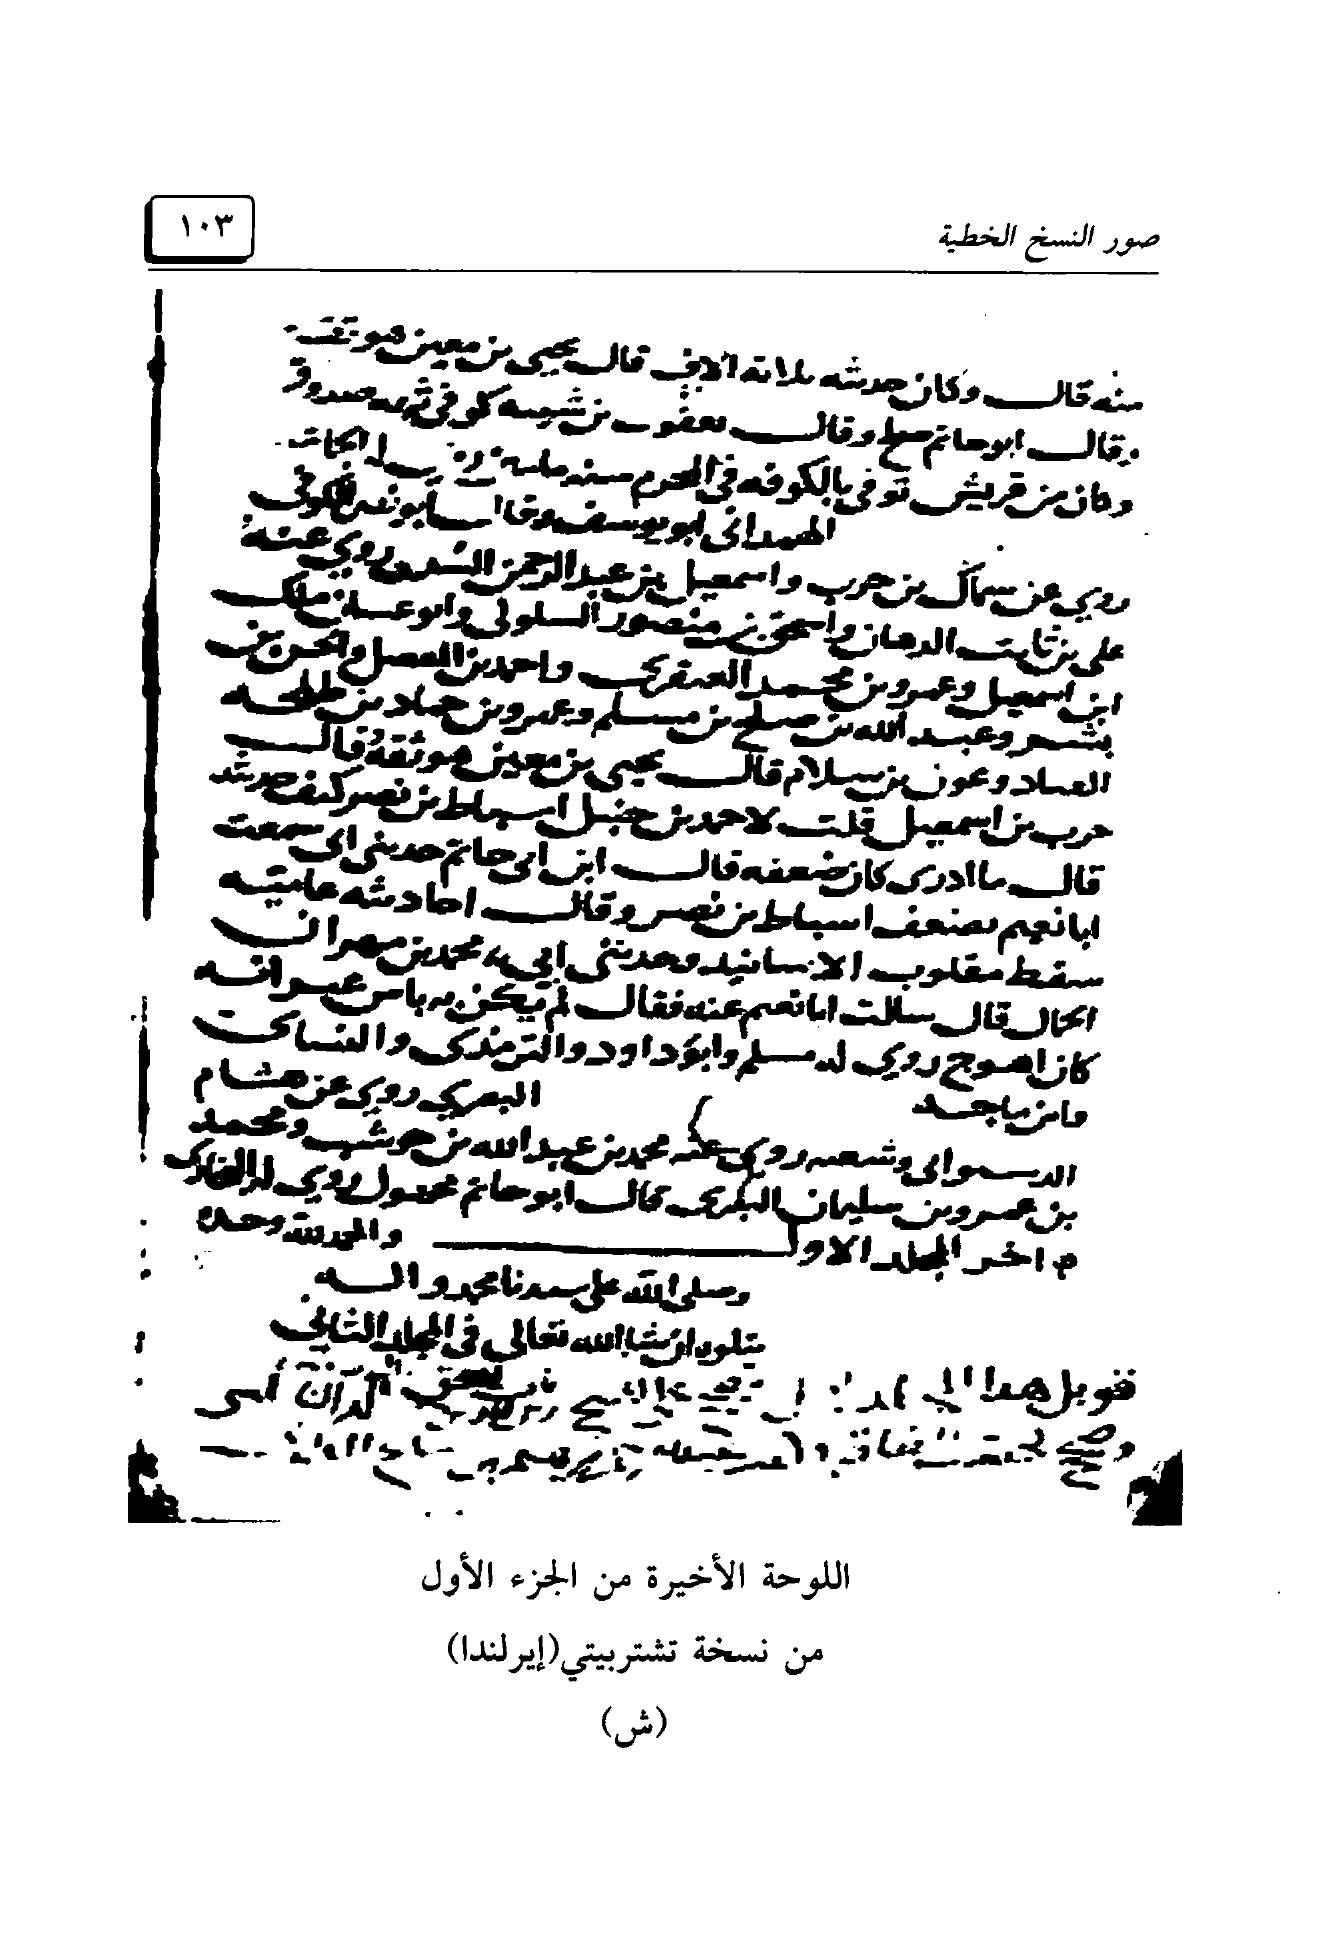 صور النسخ الخطية
١٠٣
منه قال وكان حديثه ثلاثة آلاف قال يحيى بن معين هو ثقة
وقال ابو حاتم صالح وقال يعقوب بن شيبه كوفي ثقه صدوق
وكان من قريش توفي بالكوفه في المحرم سنه له الجماعة
الهمداني ابو يوسف وقال ابو نصر الكوفي
روي عن سماك بن حرب واسمعيل بن عبد الرحمن السدي روي عنه
علي بن ثابت الدهان واسحق بن منصور السلولي وابو غسان ملك
ابن اسمعيل وعمرو بن محمد العنقزي واحمد بن المفضل والحسن بن
بشر وعبد الله بن صلح بن مسلم وعمرو بن حماد بن طلحه
القناد وعون بن سلام قال يحيى بن معين هو ثقة قال
حرب بن اسمعيل قلت لاحمد بن حنبل اسباط بن نصر كيف حديثه
قال ما ادري كان ضعفه قال ابن ابي حاتم حدثني ابي سمعت
ابا نعيم يضعف اسباط بن نصر وقال احاديثه عاميته
سقط مقلوب الاسانيد وحدثني ابي محمد بن مهران
الجمال قال سالت ابا نعيم عنه فقال لم يكن به باس غير انه
كان اهوج روي له مسلم وابو داود والترمذي والنسائي
وابن ماجه البصري روي عن هشام
الدستوائي وشعبه روي عنه محمد بن عبد الله بن حوشب ومحمد
بن عمرو بن سليمان البكري قال ابو حاتم مجهول روي له البخاري
م اخر المجلد الاول والحمد لله وحده
وصلى الله على سيدنا محمد واله
يتلوه ان شا الله تعالى في المجلد الثاني
قوبل هذا
اللوحة الأخيرة من الجزء الأول
من نسخة تشتربيتي (إيرلندا)
(ش)